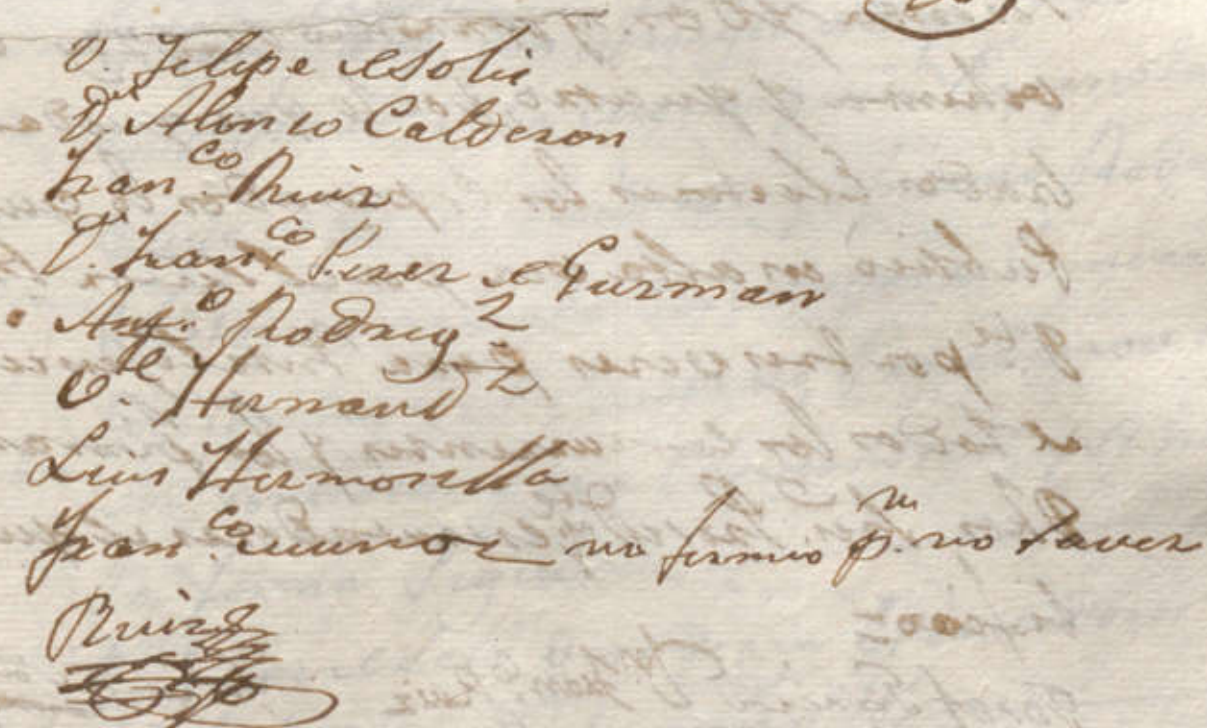 D. Felipe de Solis
Dn. Alonso Calderon
Franco. Ruiz
Dn. Franco. Perez de Guzman
Anto. Rodrigz
Hernandz
Luis Hermosilla
Franco. munoz no firmo pr. no saver
Ruiz